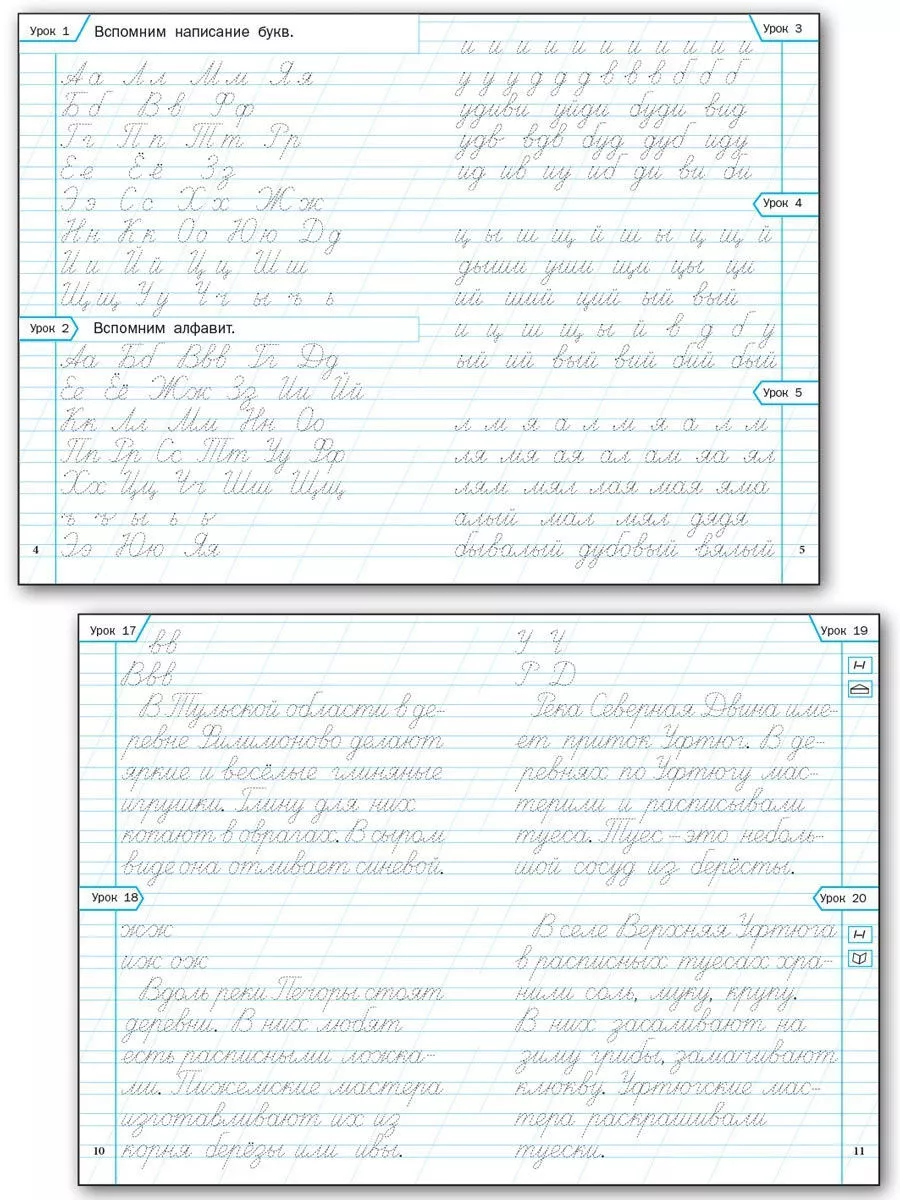 Урок 1
Вспомним написание букв.
Аа Лл Мм Яя
Бб Вв Фф
Гг Пп Тт Рр
Ее Ёё Зз
Ээ Сс Хх Жж
Нн Кк Оо Юю Дд
Ии Йй Цц Шш
Щщ Уу Чч ы ъ ь
Урок 2
Вспомним алфавит.
Аа Бб Ввв Гг Дд
Ее Ёё Жж Зз Ии Йй
Кк Лл Мм Нн Оо
Пп Рр Сс Тт Уу Фф
Хх Цц Чч Шш Щщ
ъ ъ ы ь ь
Ээ Юю Яя
4
Урок 3
и и и и и и и и и и и
у у у д д д в в в б б б
удиви уйди буди вид
удв вдв буд дуб иду
ид ив иу иб ди ви би
Урок 4
ц ы ш щ й ш ы ц щ й
дыши уши щи цы ци
ий ший ций ый вый
и ц ш щ ы й в д б у
ый ий вый вий бий бый
Урок 5
л м я а л м я а л м
ля мя ая ал ам яа ял
лям мял лая мая яма
алый мал мял дядя
бывалый дубовый вялый
5
Урок 17
вв
Ввв
В Тульской области в де-
ревне Филимоново делают
яркие и весёлые глиняные
игрушки. Глину для них
копают в оврагах. В сыром
виде она отливает синевой.
Урок 18
жж
иж ож
Вдоль реки Печоры стоят
деревни. В них любят
есть расписными ложка-
ми. Пижемские мастера
изготавливают их из
корня берёзы или ивы.
10
Урок 19
У Ч
Р Д
Река Северная Двина име-
ет приток Уфтюг. В де-
ревнях по Уфтюгу мас-
терили и расписывали
туеса. Туес – это неболь-
шой сосуд из берёсты.
Урок 20
В селе Верхняя Уфтюга
в расписных туесах хра-
нили соль, муку, крупу.
В них засаливают на
зиму грибы, замачивают
клюкву. Уфтюгские мас-
тера раскрашивали
туески.
11